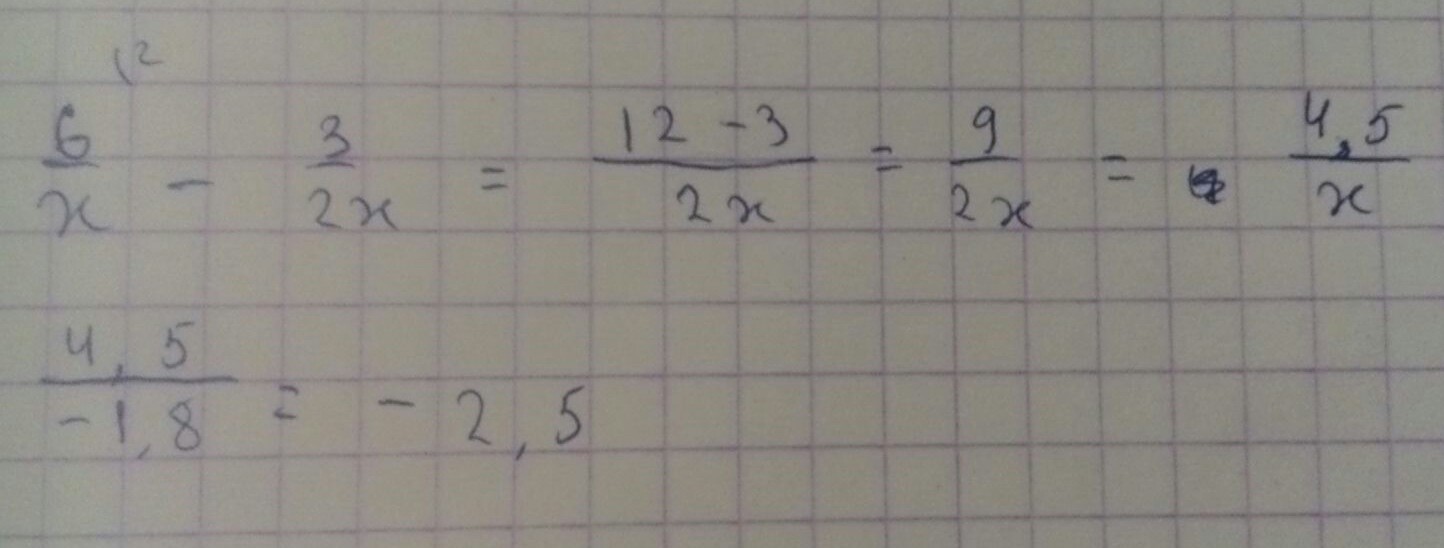 \2
6/x - 3/2x = 12-3/2x = 9/2x = 4,5/x
4,5/-1,8 = -2,5